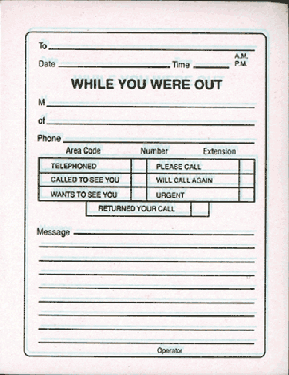 To
A.M.
Date Time P.M.
WHILE YOU WERE OUT
M
of
Phone
Area Code Number Extension
TELEPHONED PLEASE CALL
CALLED TO SEE YOU WILL CALL AGAIN
WANTS TO SEE YOU URGENT
RETURNED YOUR CALL
Message
Operator